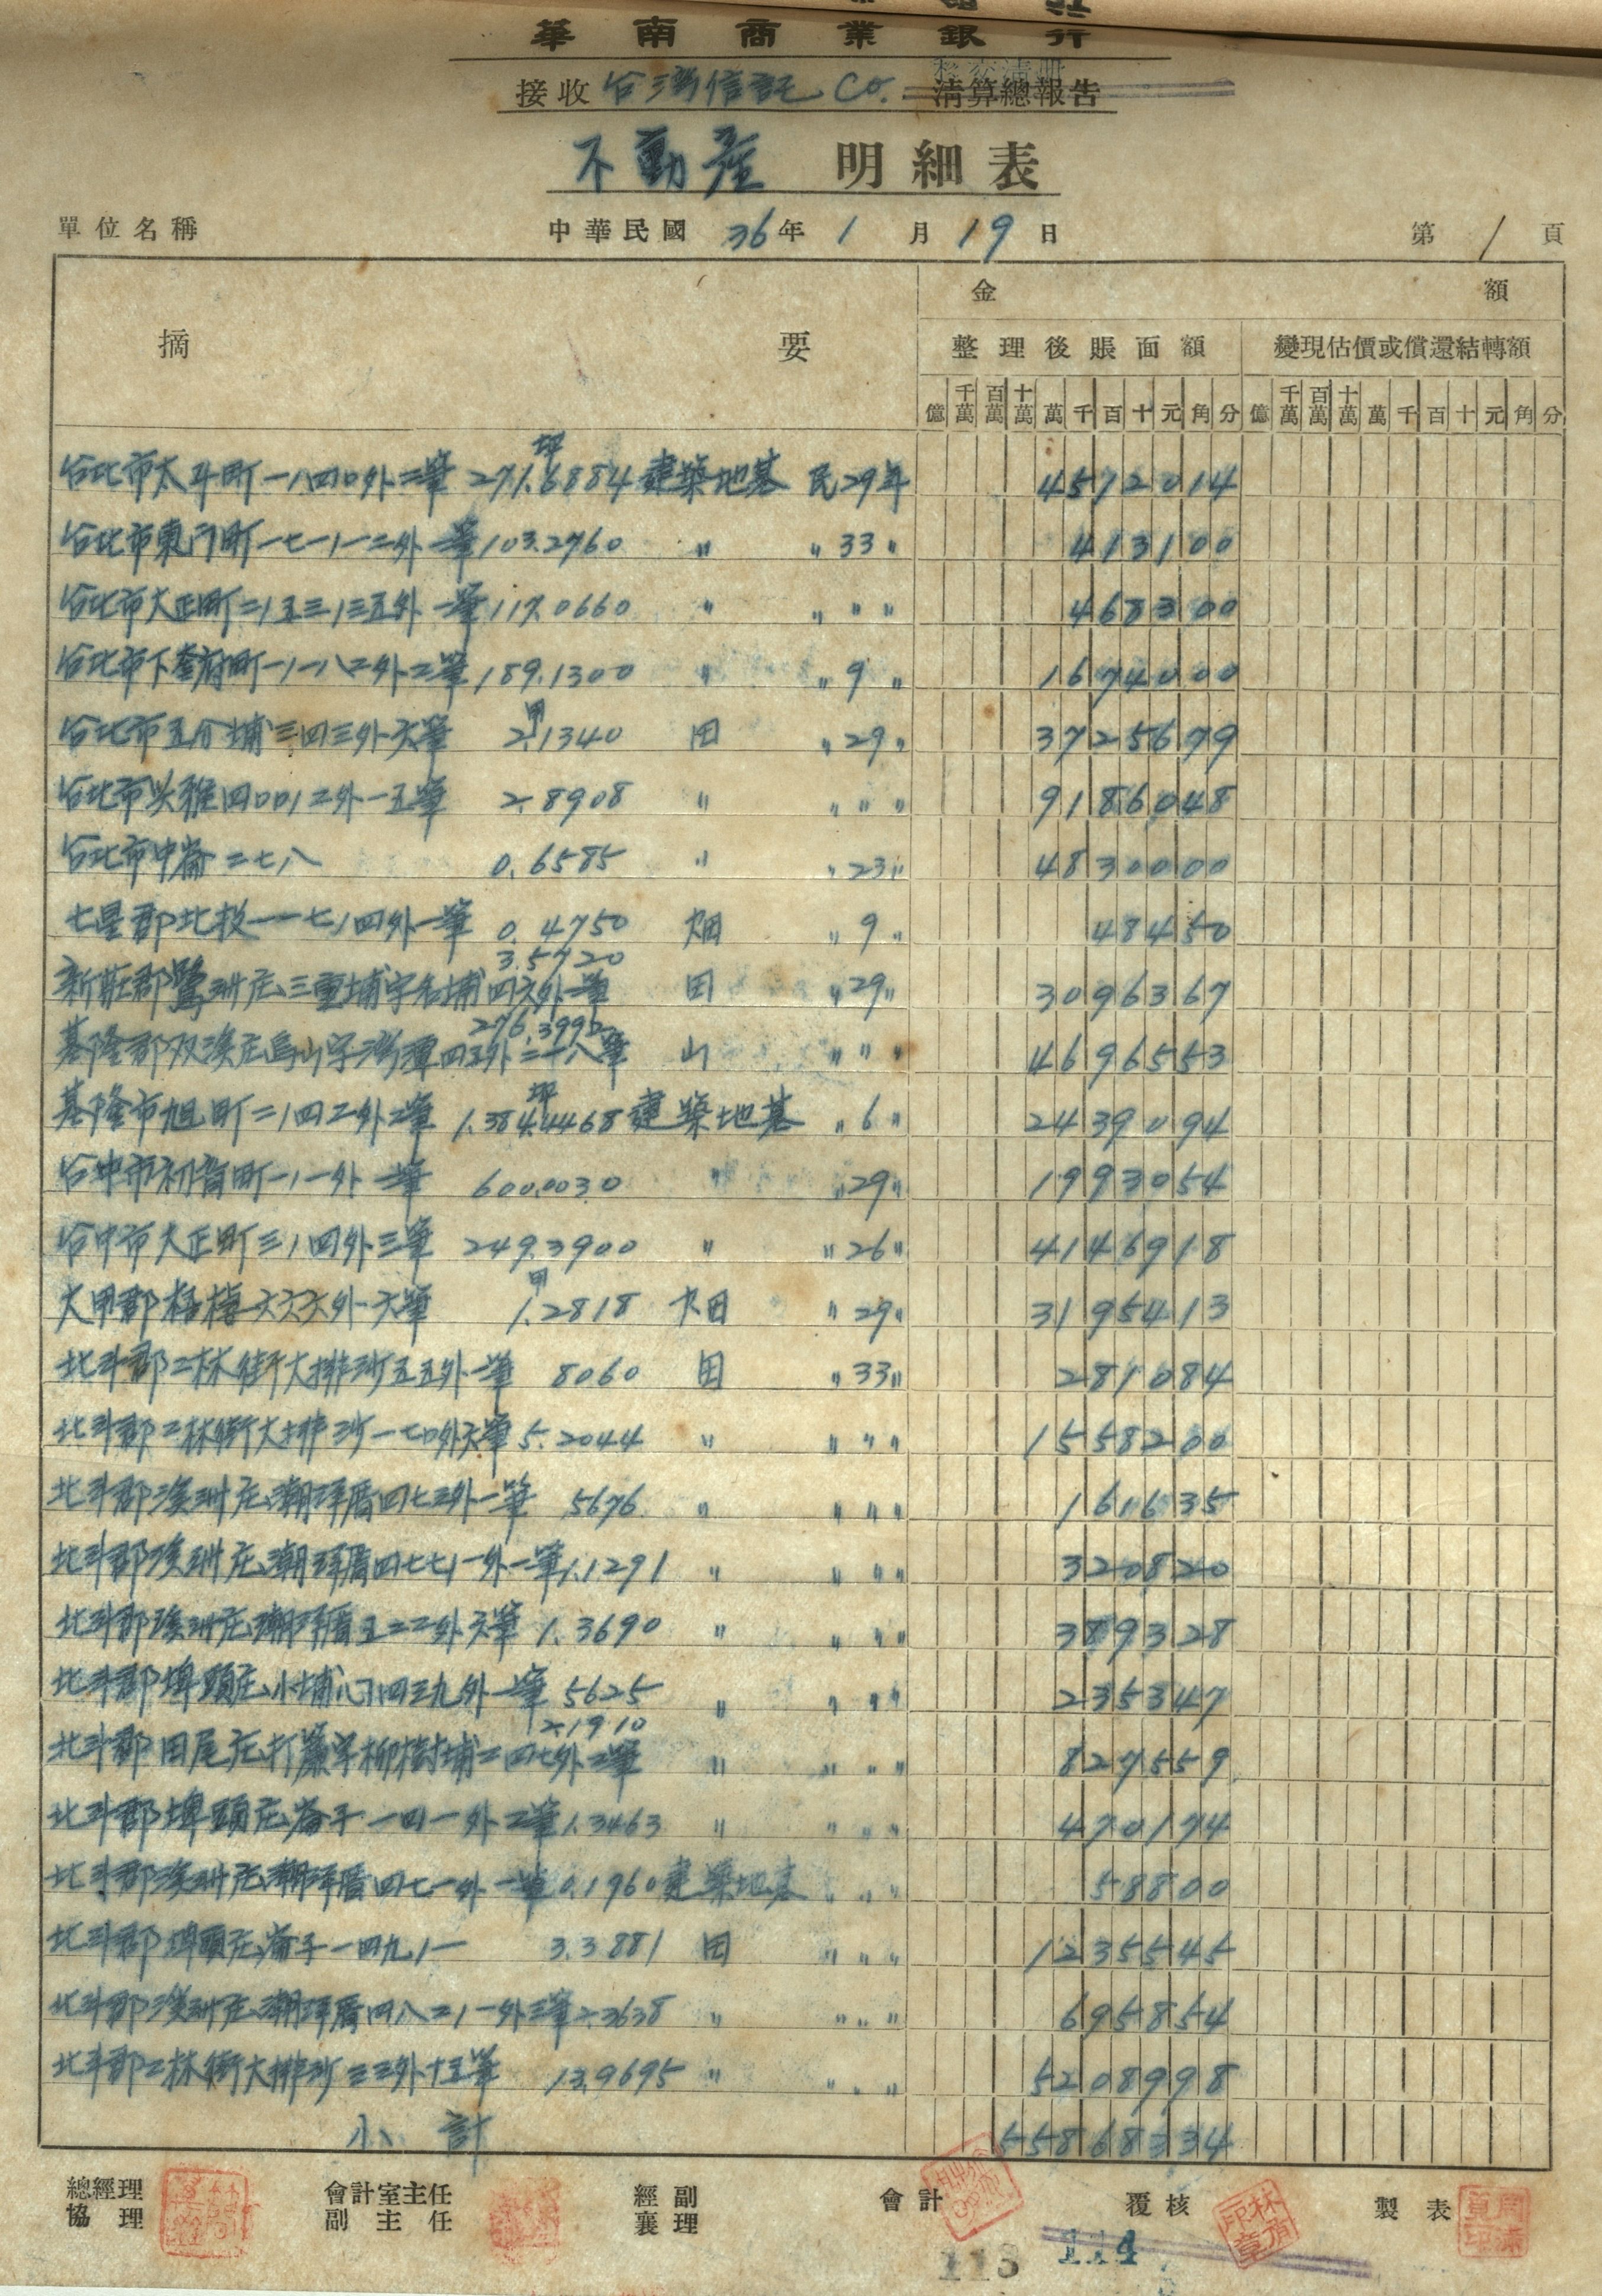 華南商業銀行
接收 台灣信託 Co. 清算總報告
移交清冊
不動產 明細表
單位名稱 中華民國 36年 1月 19日 第 1 頁
摘要 金額
整理後賬面額 變現估價或償還結轉額
億 千萬 百萬 十萬 萬 千 百 十 元 角 分 億 千萬 百萬 十萬 萬 千 百 十 元 角 分
坪
台北市太平町一八四0外二筆 271.6884 建築地基 民29年 4572014
台北市東門町一七一/一二外一筆 103.2760 〃 〃33〃 413100
台北市大正町二/五三/三五外一筆 117.0660 〃 〃〃〃 468300
台北市下奎府町一/一八二外二筆 189.1300 〃 〃9〃 1674000
甲
台北市五分埔三四三外六筆 2.1340 田 〃29〃 3725679
台北市头雅四00/2外一五筆 2.8908 〃 〃〃〃 9186048
台北市中崙二七八 0.6585 〃 〃23〃 4830000
七星郡北投一一七/四外一筆 0.4750 畑 〃9〃 48450
3.5720
新莊郡鷺洲庄三重埔字各埔四六外一筆 田 〃29〃 3096367
276.3995
基隆郡双溪庄烏山字灣潭四五外二十八筆 山 〃〃〃 4696553
坪
基隆市旭町二/四二外2筆 1.384.4468 建築地基 〃6〃 2439094
台中市初音町一/一外一筆 600.0030 〃 〃29〃 1993054
台中市大正町三/四外三筆 249.3900 〃 〃26〃 4146918
甲
大甲郡梧棲六六六外六筆 1.2818 畑 〃29〃 3195413
北斗郡二林街大排沙五五外一筆 8060 田 〃33〃 281084
北斗郡二林街大排沙一七0外六筆 5.2044 〃 〃〃〃 1558200
北斗郡溪洲庄潮洋厝四七三外一筆 5676 〃 〃〃〃 161635
北斗郡溪洲庄潮洋厝四七七/一外一筆 1.1291 〃 〃〃〃 320820
北斗郡溪洲庄潮洋厝五二二外六筆 1.3690 〃 〃〃〃 389328
北斗郡埤頭庄小埔心四三九外一筆 5625 〃 〃〃〃 235347
2.1910
北斗郡田尾庄打簾字柳樹埔二四七外二筆 〃 〃〃〃 827559
北斗郡埤頭庄崙子一四一外二筆 1.3463 〃 〃〃〃 470174
北斗郡溪洲庄潮洋厝四七一外一筆 0.1960 建築地基 〃〃〃 58800
北斗郡埤頭庄崙子一四九/一 3.3881 田 〃〃〃 1235545
北斗郡溪洲庄潮洋厝四八二/一外三筆 2.3638 〃 〃〃〃 695854
北斗郡二林街大排沙三三外十五筆 13.9695 〃 〃〃〃 5208998
小計 55868334
總經理 會計室主任 經副 會計 覆核 製表
協理 副主任 襄理
113 114